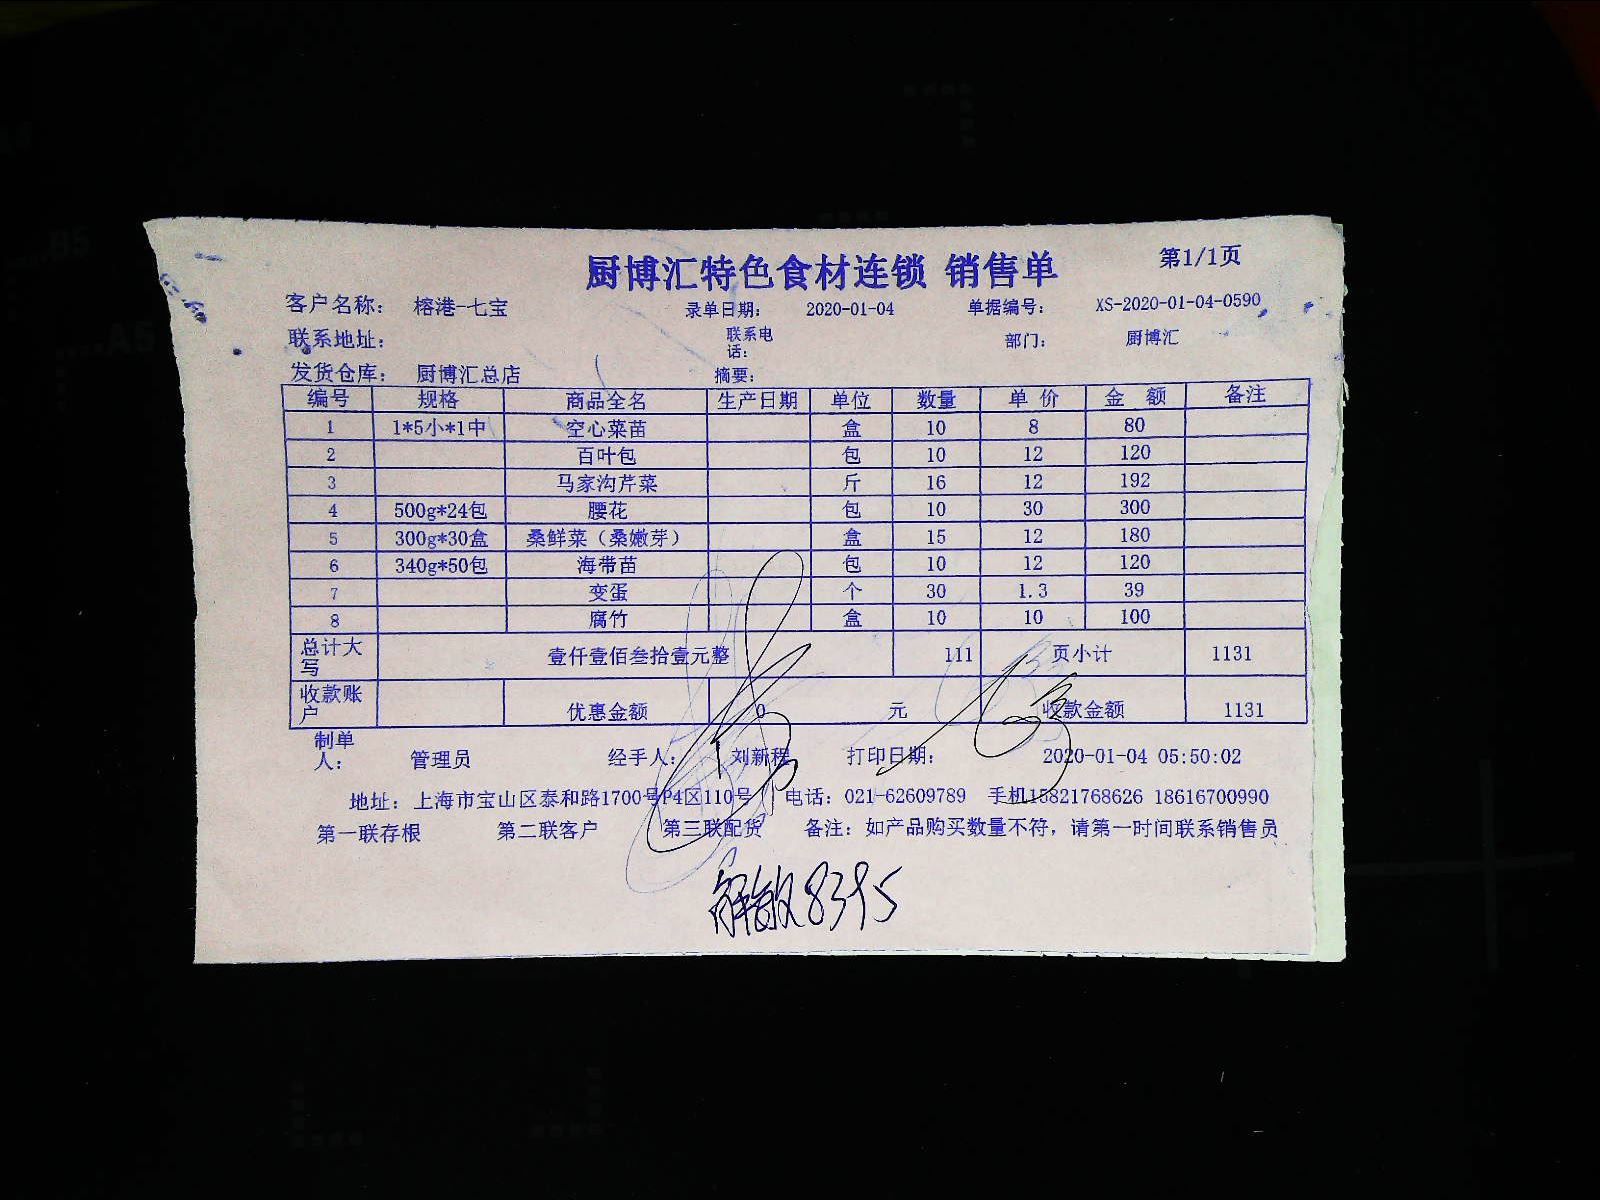 厨博汇特色食材连锁 销售单 第1/1页
客户名称： 榕港-七宝 录单日期： 2020-01-04 单据编号： XS-2020-01-04-0590
联系地址： 联系电话： 部门： 厨博汇
发货仓库： 厨博汇总店 摘要：
编号 规格 商品全名 生产日期 单位 数量 单价 金额 备注
1 1*5小*1中 空心菜苗 盒 10 8 80
2 百叶包 包 10 12 120
3 马家沟芹菜 斤 16 12 192
4 500g*24包 腰花 包 10 30 300
5 300g*30盒 桑鲜菜（桑嫩芽） 盒 15 12 180
6 340g*50包 海带苗 包 10 12 120
7 变蛋 个 30 1.3 39
8 腐竹 盒 10 10 100
总计大写 壹仟壹佰叁拾壹元整 111 页小计 1131
收款账户 优惠金额 0 元 收款金额 1131
制单人： 管理员 经手人： 刘新程 打印日期： 2020-01-04 05:50:02
地址：上海市宝山区泰和路1700号P4区110号 电话：021-62609789 手机15821768626 18616700990
第一联存根 第二联客户 第三联配货 备注：如产品购买数量不符，请第一时间联系销售员
解敏8395